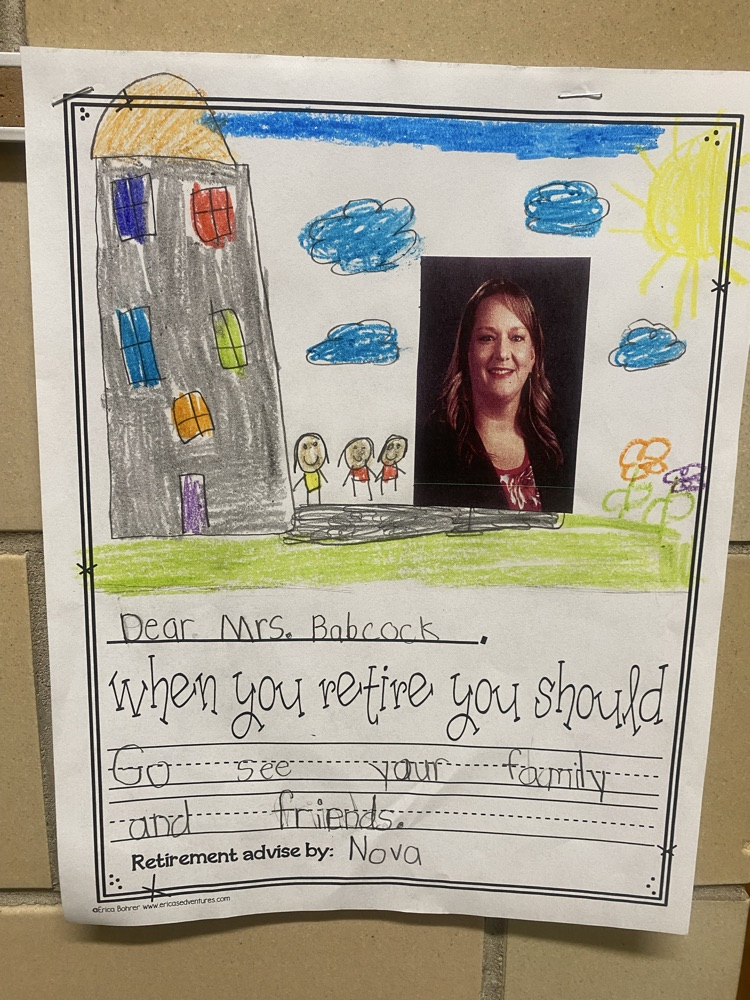 Dear Mrs. Babcock.
when you retire you should
Go see your family
and friends.
Retirement advise by: Nova
©Erica Bohrer www.ericasedventures.com